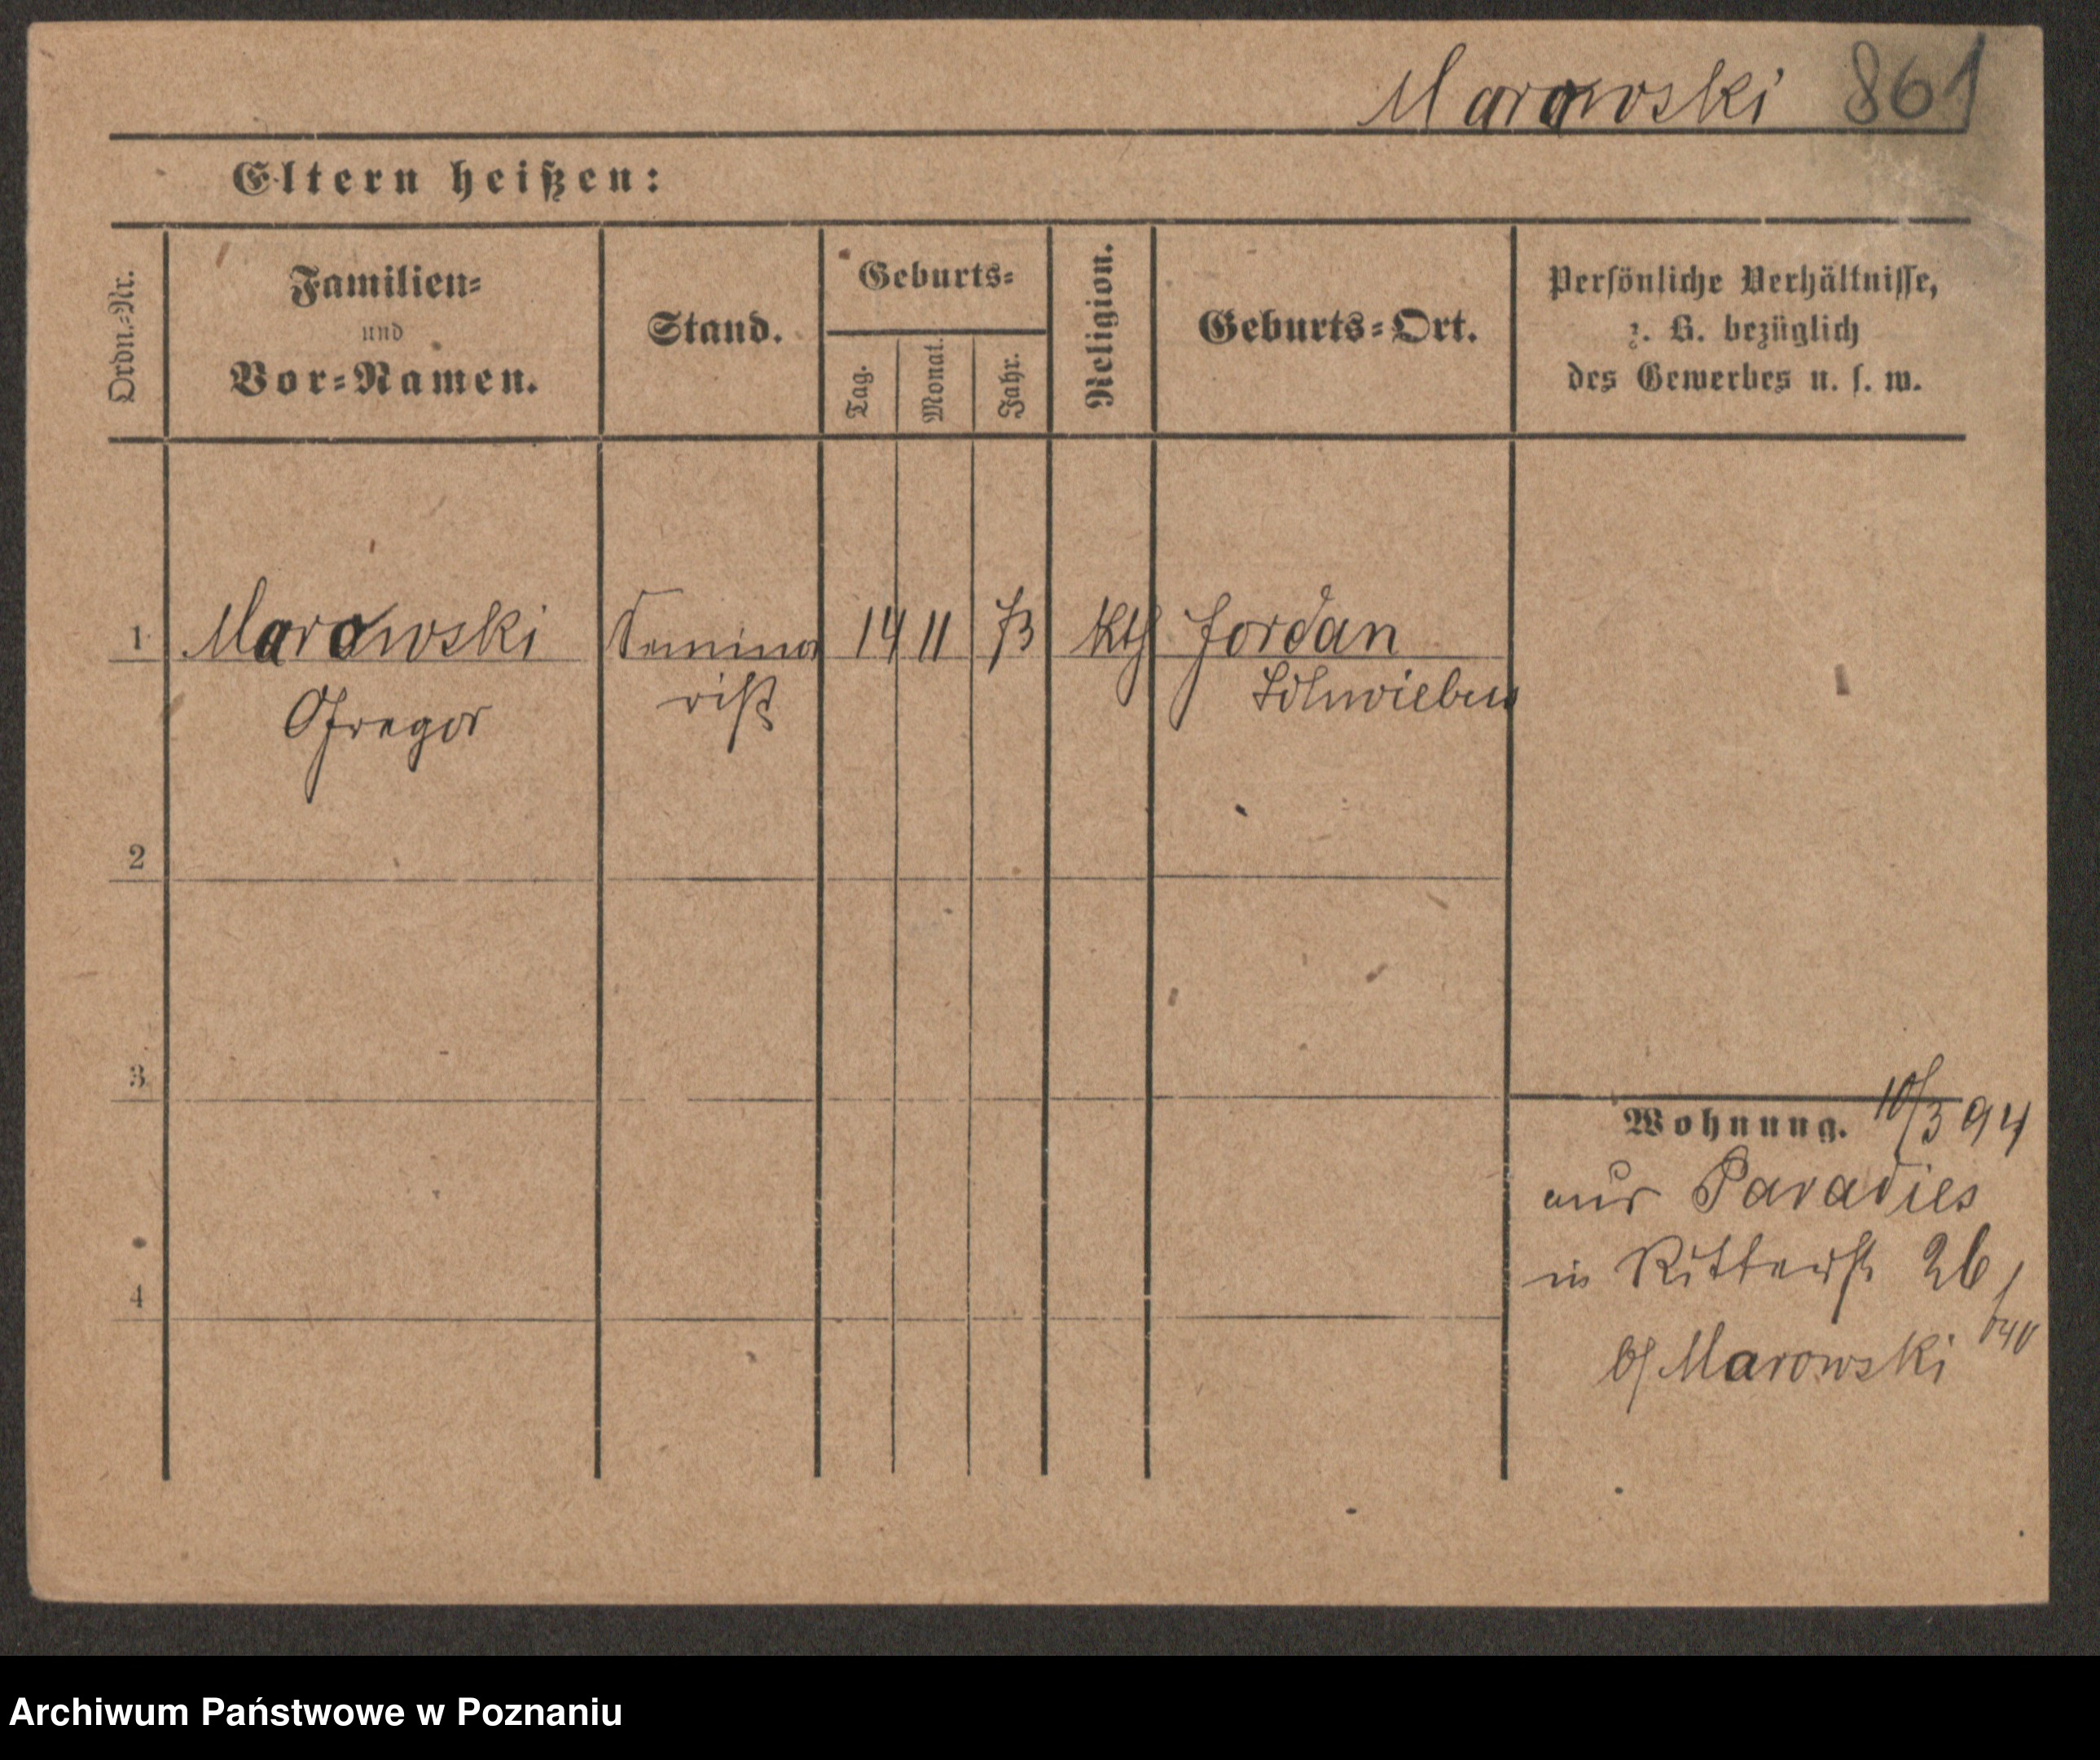 Marowski 861
Eltern heißen:
Ordn.-Nr.
Familien-
und
Vor-Namen.
Stand.
Geburts-
Tag.
Monat.
Jahr.
Religion.
Geburts-Ort.
Persönliche Verhältnisse,
z. B. bezüglich
des Gewerbes u. s. w.
1 Marowski Semina 14 11 73 Kth Jordan
Gregor rist Schwiebus
2
3
Wohnung. 10/3 94
aus Paradies
in Ritterst 26
b/ Marowski
4
Archiwum Państwowe w Poznaniu